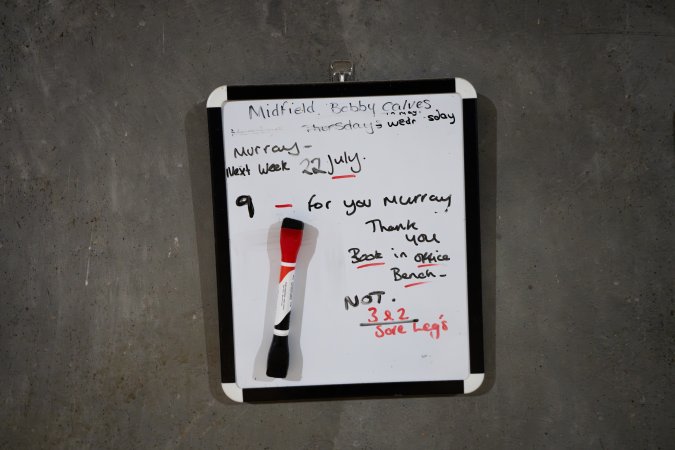 Midfield Bobby Calves
in May
Thursday's wedr sday
Murray -
Next Week 22 July.
9 - for you Murray
Thank
you
Book in office
Bench -
NOT.
3 & 2
Sore Leg's